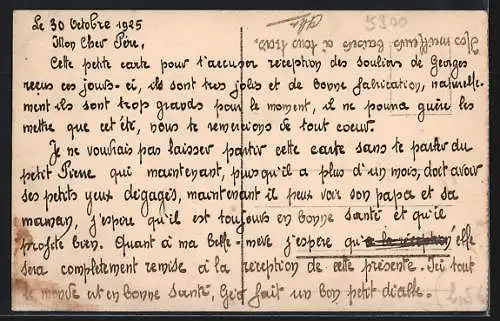 Le 30 Octobre 1925
Mon Cher Père,
Cette petite carte pour t'accuser réception des souliers de Georges
reçus ces jours-ci, ils sont très jolis et de bonne fabrication, naturelle-
ment ils sont trop grands pour le moment, il ne pourra guère les
mettre que cet été, nous te remercions de tout coeur.
Je ne voudrais pas laisser partir cette carte sans te parler du
petit Pierre qui maintenant, puisqu'il a plus d'un mois, doit avoir
ses petits yeux dégagés, maintenant il peux voir son papa et sa
maman, j'espère qu'il est toujours en bonne santé et qu'il
profite bien. Quant à ma belle-mère j'espère qu'à la réception elle
sera complètement remise à la reception de cette présente. Ici tout
le monde est en bonne santé, Geo fait un bon petit diable.
Mes meilleurs baisers à tous trois.
5300